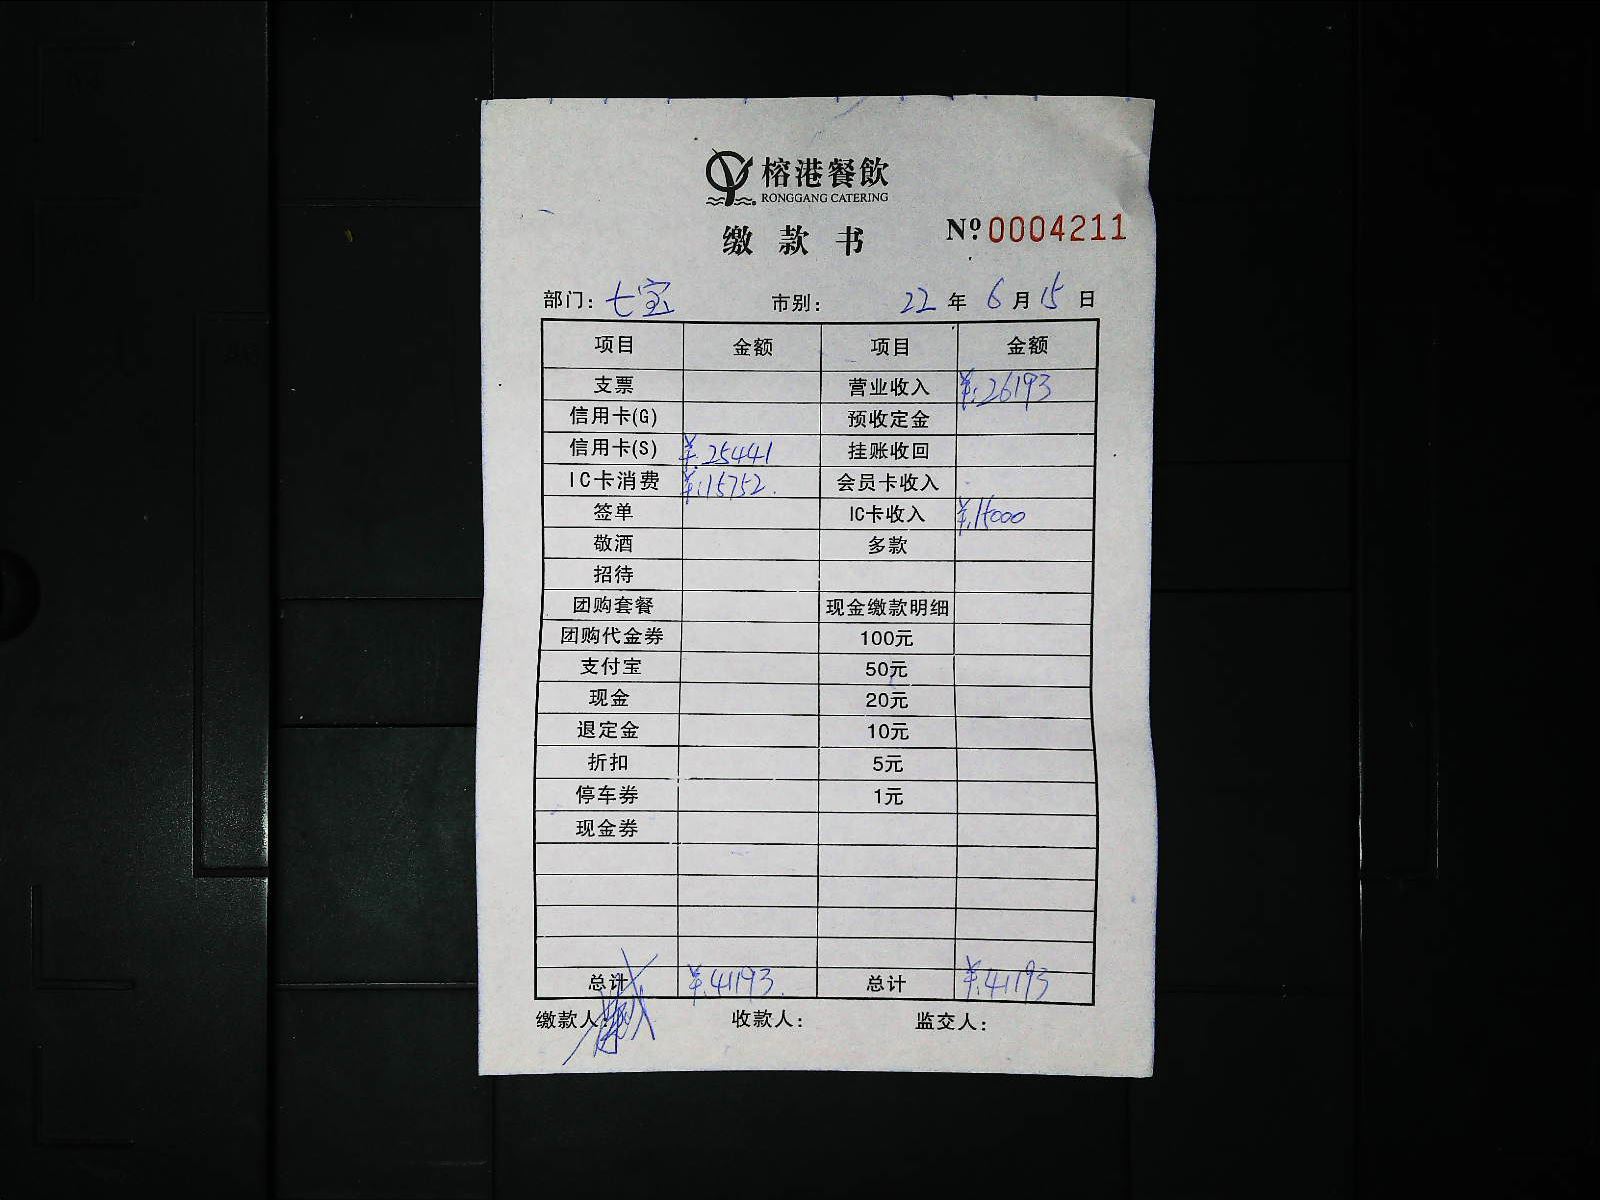 榕港餐飲
RONGGANG CATERING
缴款书 Nº 0004211
部门: 七宝 市别: 22 年 6 月 15 日
项目 金额 项目 金额
支票 营业收入 ¥:26193
信用卡(G) 预收定金
信用卡(S) ¥.25441 挂账收回
IC卡消费 ¥:15752. 会员卡收入
签单 IC卡收入 ¥.15000
敬酒 多款
招待
团购套餐 现金缴款明细
团购代金券 100元
支付宝 50元
现金 20元
退定金 10元
折扣 5元
停车券 1元
现金券
总计 ¥.41193. 总计 ¥.41193
缴款人: 收款人: 监交人: